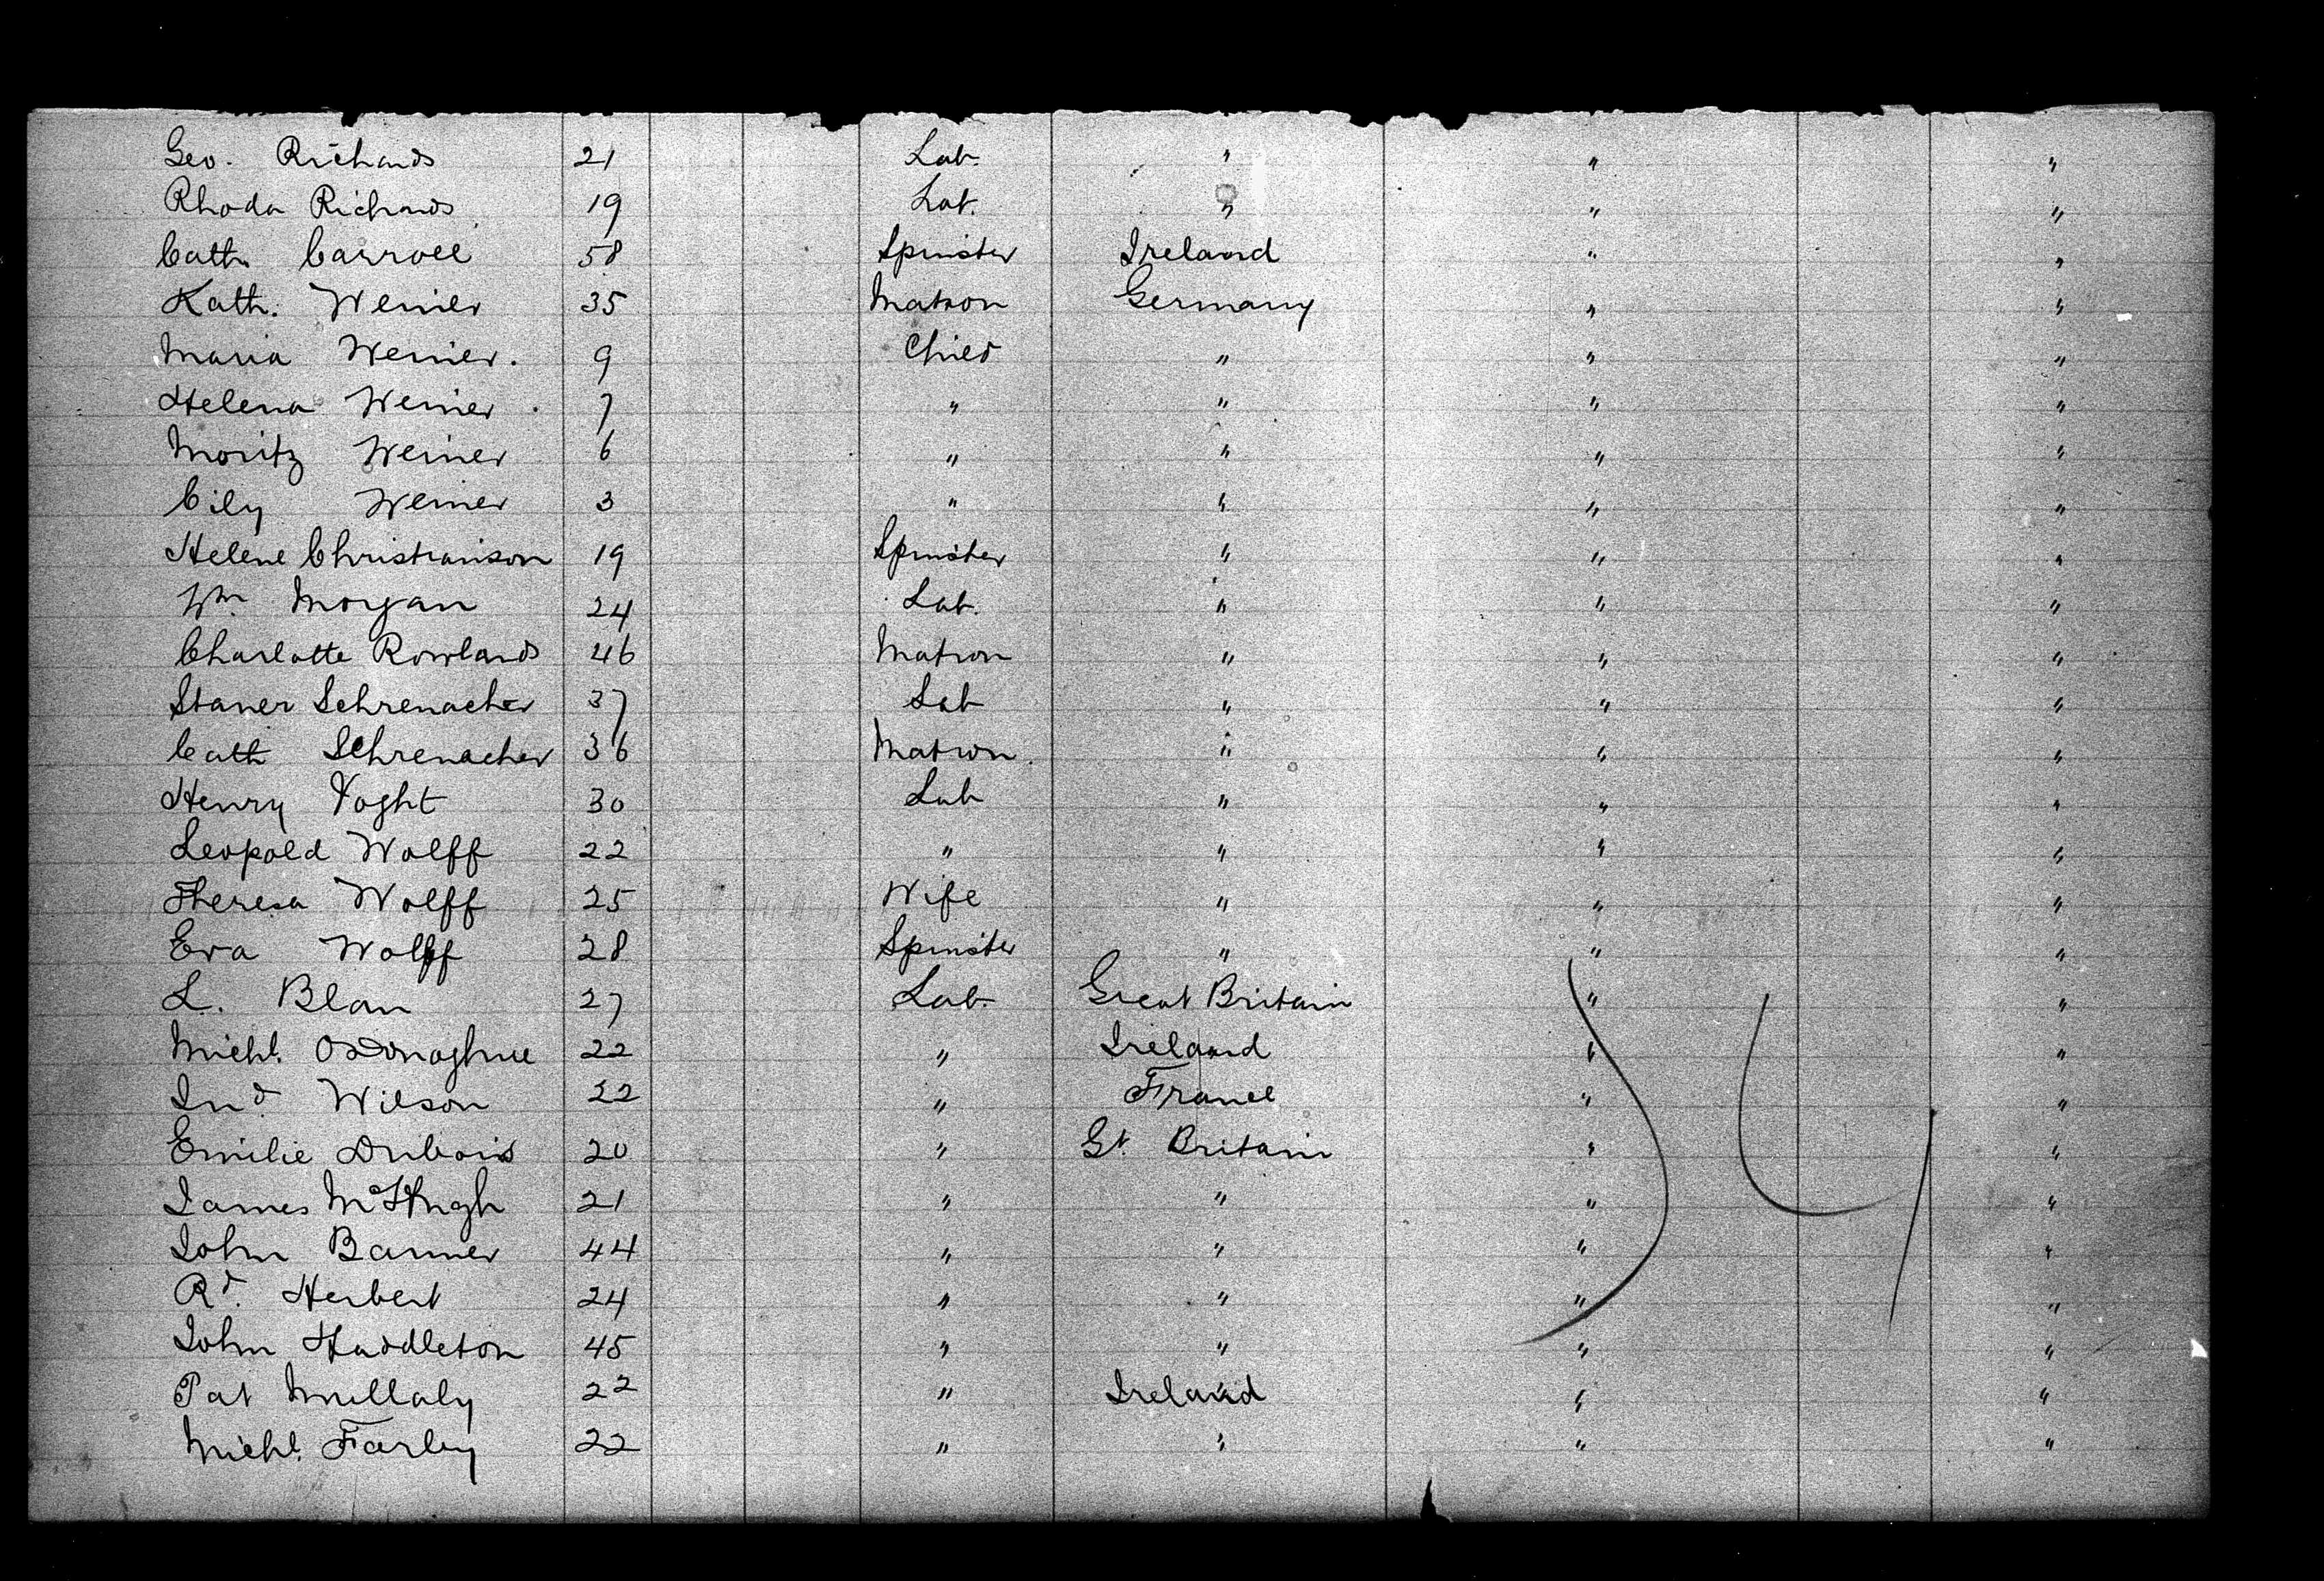 Geo. Richards 21 Lab. " " "
Rhoda Richards 19 Lab. " " "
Cath. Carroll 58 Spinster Ireland " "
Kath. Werner 35 Matron Germany " "
Maria Werner. 9 Child " " "
Helena Werner 7 " " " "
Moritz Werner 6 " " " "
Cily Werner 3 " " " "
Helene Christianson 19 Spinster " " "
Wm Morgan 24 Lab. " " "
Charlotte Rowlands 46 Matron " " "
Staner Schrenacher 37 Lab " " "
Cath Schrenacher 36 Matron " " "
Henry Voght 30 Lab " " "
Leopold Wolff 22 " " " "
Theresa Wolff 25 Wife " " "
Eva Wolff 28 Spinster " " "
L. Blan 27 Lab. Great Britain " "
Michl. O'Donoghue 22 " Ireland " "
Jno. Wilson 22 " France " "
Emilie Dubois 20 " Gt. Britain " "
James McHugh 21 " " " "
John Banner 44 " " " "
Rd. Herbert 24 " " " "
John Haddleton 45 " " " "
Pat Mullaly 22 " Ireland " "
Michl. Farley 22 " " " "